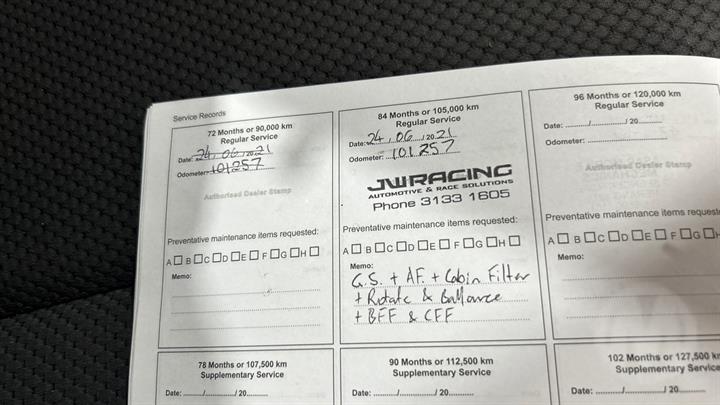 Service Records
72 Months or 90,000 km
Regular Service
Date: 24, 06, 20 21
Odometer: 101257
Authorised Dealer Stamp
Preventative maintenance items requested:
A☐ B☐ C☐ D☐ E☐ F☐ G☐ H☐
Memo:
84 Months or 105,000 km
Regular Service
Date: 24, 06 / 20 21
Odometer: 101257
JWRACING
AUTOMOTIVE & RACE SOLUTIONS
Phone 3133 1605
Preventative maintenance items requested:
A☐ B☐ C☐ D☐ E☐ F☐ G☐ H☐
Memo:
G.S. + AF. + Cabin Filter
+ Rotate & Ballance
+ BFF & CFF
96 Months or 120,000 km
Regular Service
Date: ........./........./ 20.........
Odometer: ..............................
Authorised Dealer Stamp
Preventative maintenance items request
A☐ B☐ C☐ D☐ E☐ F☐ G☐ H
Memo:
78 Months or 107,500 km
Supplementary Service
Date: ........./........./ 20.........
90 Months or 112,500 km
Supplementary Service
Date: ........./........./ 20.........
102 Months or 127,500 km
Supplementary Service
Date: ........./........./ 20.........